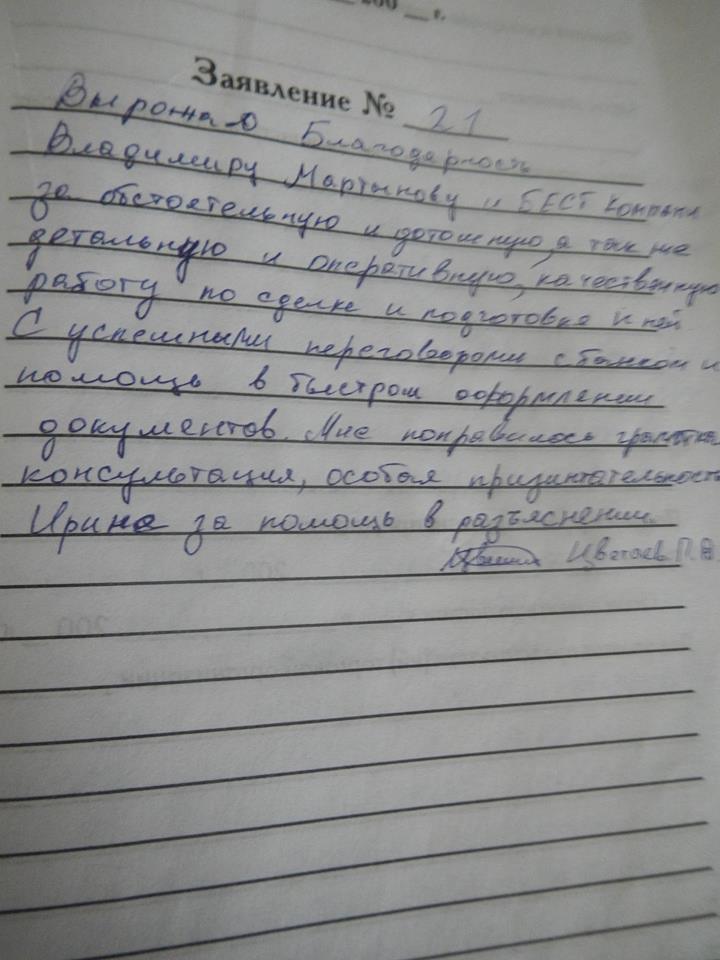 200 __ г.
Заявление № 21
Выражаю Благодарность
Владимиру Мартынову и БЕСТ Компани
за обстоятельную и дотошную, а так же
детальную и оперативную, качественную
работу по сделке и подготовке к ней
С успешными переговорами с банком и
помощь в быстром оформлении
документов. Мне понравилось
консультация, особая
Ирине за помощь в разъяснении.
Цветаев П.В.